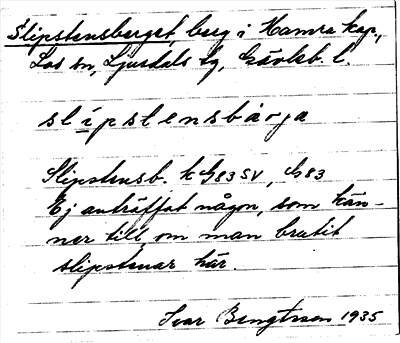 Slipstensberget, berg i Hamra kap.,
Los sn, Ljusdals tg, Gävleb. l.
slipstensbárja
Slipstensb. k G83 SV, G83
Ej anträffat någon, som kän-
ner till, om man brutit
slipstenar här.
Ivar Bengtsson 1935